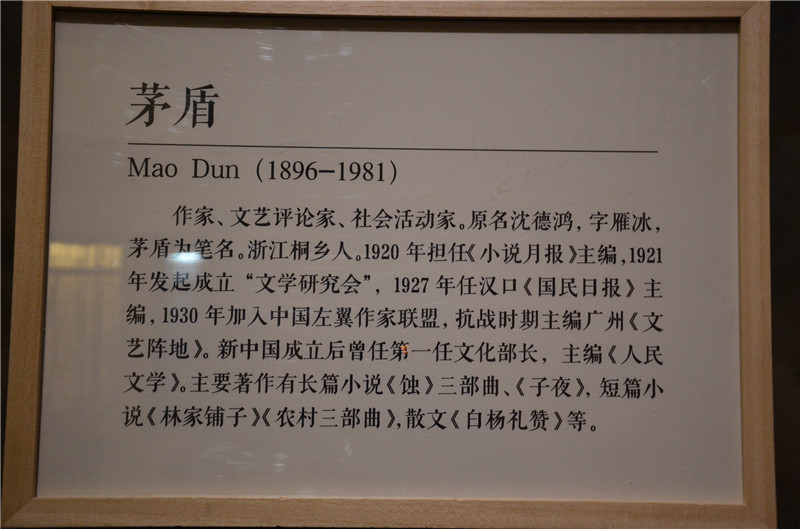 茅盾
Mao Dun (1896-1981)
作家、文艺评论家、社会活动家。原名沈德鸿，字雁冰，
茅盾为笔名。浙江桐乡人。1920 年担任《小说月报》主编，1921
年发起成立“文学研究会”，1927 年任汉口《国民日报》主
编，1930 年加入中国左翼作家联盟，抗战时期主编广州《文
艺阵地》。新中国成立后曾任第一任文化部长，主编《人民
文学》。主要著作有长篇小说《蚀》三部曲、《子夜》，短篇小
说《林家铺子》《农村三部曲》，散文《白杨礼赞》等。